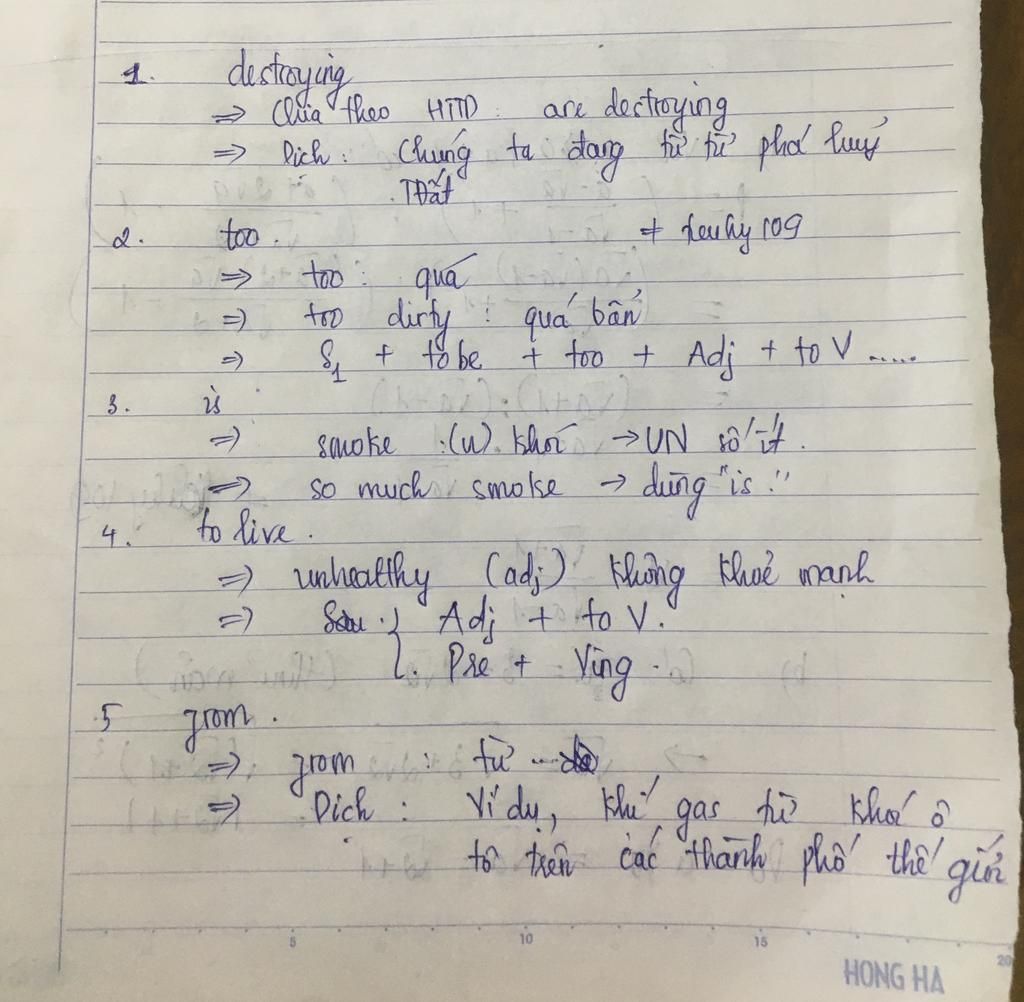 1. destroying
=> Chia theo HTTD : are destroying
=> Dịch : Chúng ta đang từ từ phá huỷ
TĐất
2. too. # heuhy109
=> too : quá
=> too dirty : quá bẩn
=> S1 + tobe + too + Adj + to V .....
3. is
=> smoke :(u). khói → UN số ít.
=> so much smoke → dùng "is"
4. to live.
=> unhealthy (adj) không khoẻ mạnh
=> Sau { Adj + to V.
Pre + Ving.
5 from.
=> from : từ ...
=> Dịch : Ví dụ, khí gas từ khói ô
tô trên các thành phố thế giới
5 10 15 20
HONG HA